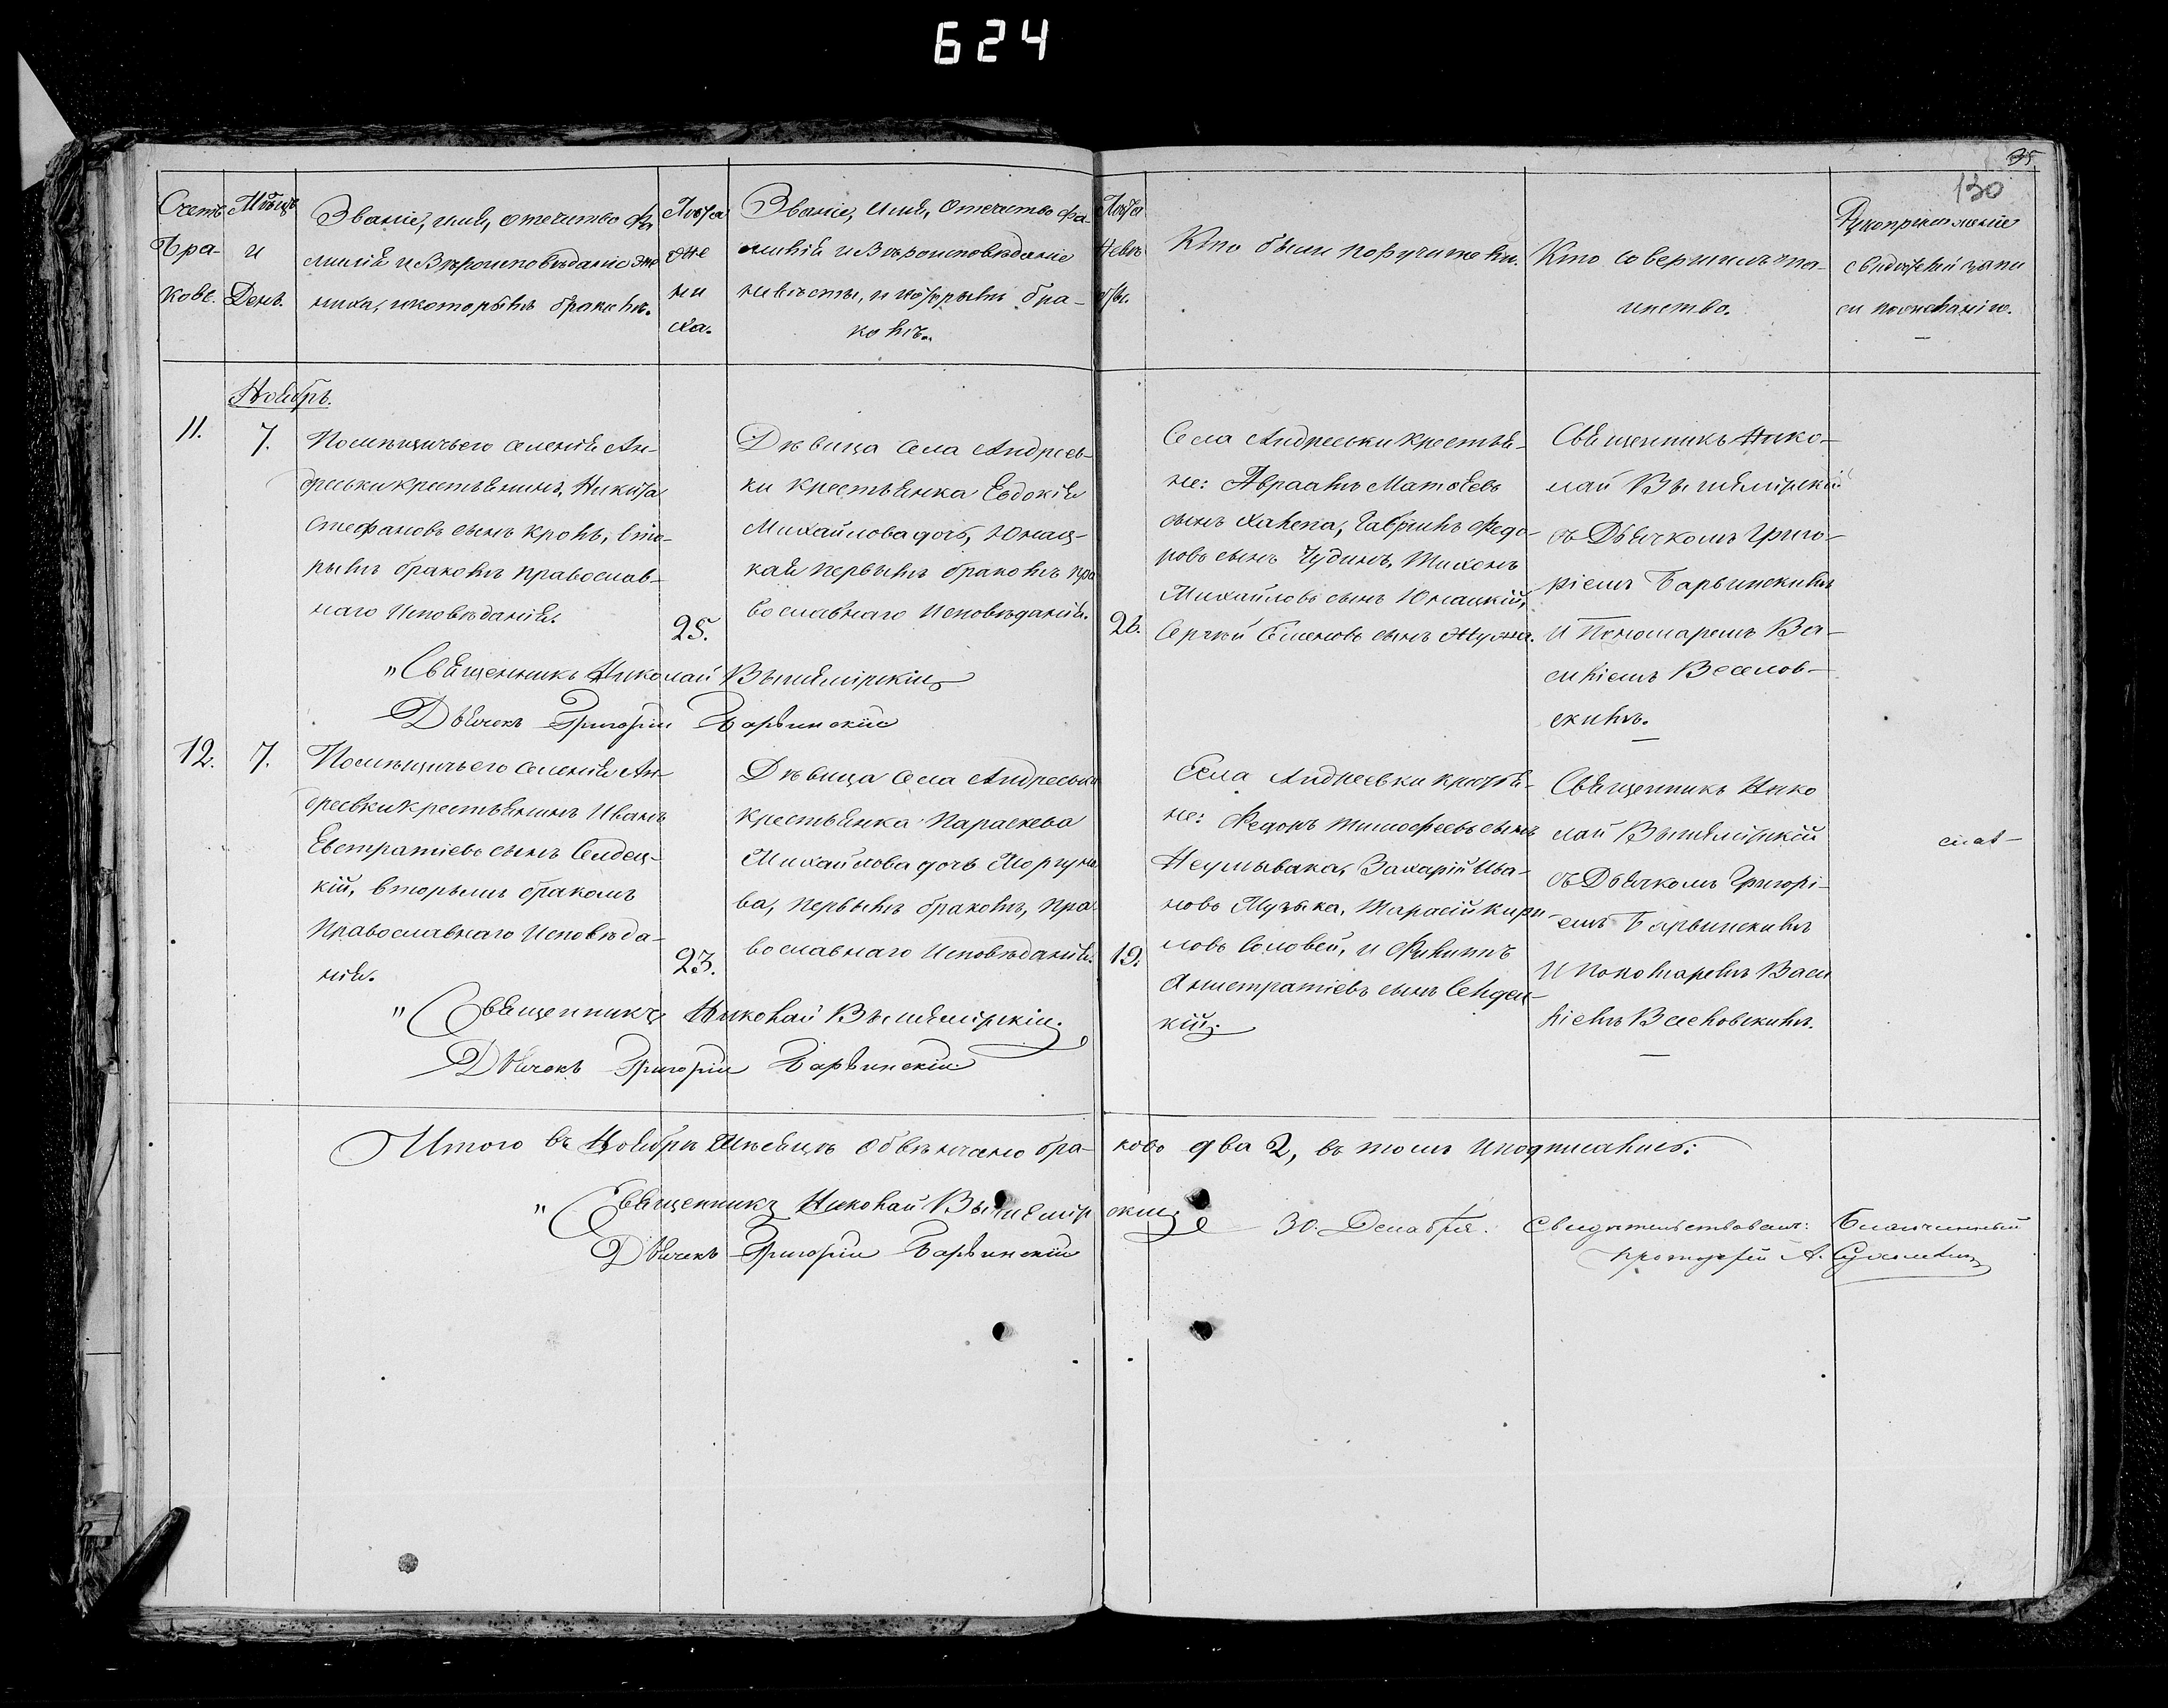 624
35
130
Счетъ
бра-
ковъ.
Мѣсяцъ
и
День.
Званіе, имя, отечитво фа
милія и Вѣроисповѣданіе же
ниха, и которымъ бракомъ.
Лѣта
же
ни
ха.
Званіе, имя, Отечитво фа-
милія и Вѣроисповѣданіе
невѣсты, и которымъ бра-
комъ.
Лѣта
Невѣ
сты.
Кто были поручители.
Кто совершилъ та-
инство.
Рукоприложеніе
свидѣтелей запи
си по желанію.
Ноябрь.
11.
7.
Помѣщичьего селенія Ан-
дреевки крестьянинъ, Никита
Стефановъ сынъ Кроль, вто-
рымъ бракомъ православ-
наго Исповѣданія.
25.
Дѣвица села Андреев-
ки крестьянка Евдокія
Михайлова дочь, Юнац-
кая первымъ бракомъ пра
вославнаго Исповѣданія.
26.
Села Андреевки крестья-
не: Авраамъ Матвѣевъ
сынъ Халепа, Гавриилъ Федо-
ровъ сынъ Чудинъ, Тихонъ
Михайловъ сынъ Юнацкій,
Сергѣй Семеновъ сынъ
Священникъ Нико-
лай Вышемірскій
съ Дьячкомъ Григо-
ріемъ Барвинскимъ
И Пономаремъ Ва-
силіемъ Веселов-
скимъ.
„Священникъ Николай Вышемірскій
Дьячекъ Григорій Барвинскій
12.
7.
Помѣщичьего селенія Ан-
дреевки крестьянинъ Иванъ
Евстратіевъ сынъ Сендец-
кій, вторымъ бракомъ
Православнаго Исповѣда-
нія.
23.
Дѣвица села Андреевки
крестьянка Параскева
Михайлова дочь Моргуно
ва, первымъ бракомъ, пра
вославнаго Исповѣданія.
19.
Села Андреевки крестья-
не: Федоръ Тимофеевъ сынъ
Неумывака, Захарій Ива-
новъ Музыка, Тарасій Кири-
ловъ Соловей, и Филиппъ
Анистратіевъ сынъ Сендец-
кій.
Священникъ Нико
лай Вышемірскій
съ Дьячкомъ Григорі-
емъ Барвинскимъ
И Пономаремъ Васи
ліемъ Веселовскимъ.
„Священникъ Николай Вышемірскій.
Дьячекъ Григорій Барвинскій
Итого въ Ноябрѣ Мѣсяцѣ обвѣнчано бра-ковъ два 2, въ томъ и подписались:
„Священникъ Николай Вышемірскій
Дьячекъ Григорій Барвинскій
30. Декабря. Свидѣтельствовалъ: Благочинный
протоіерей А.